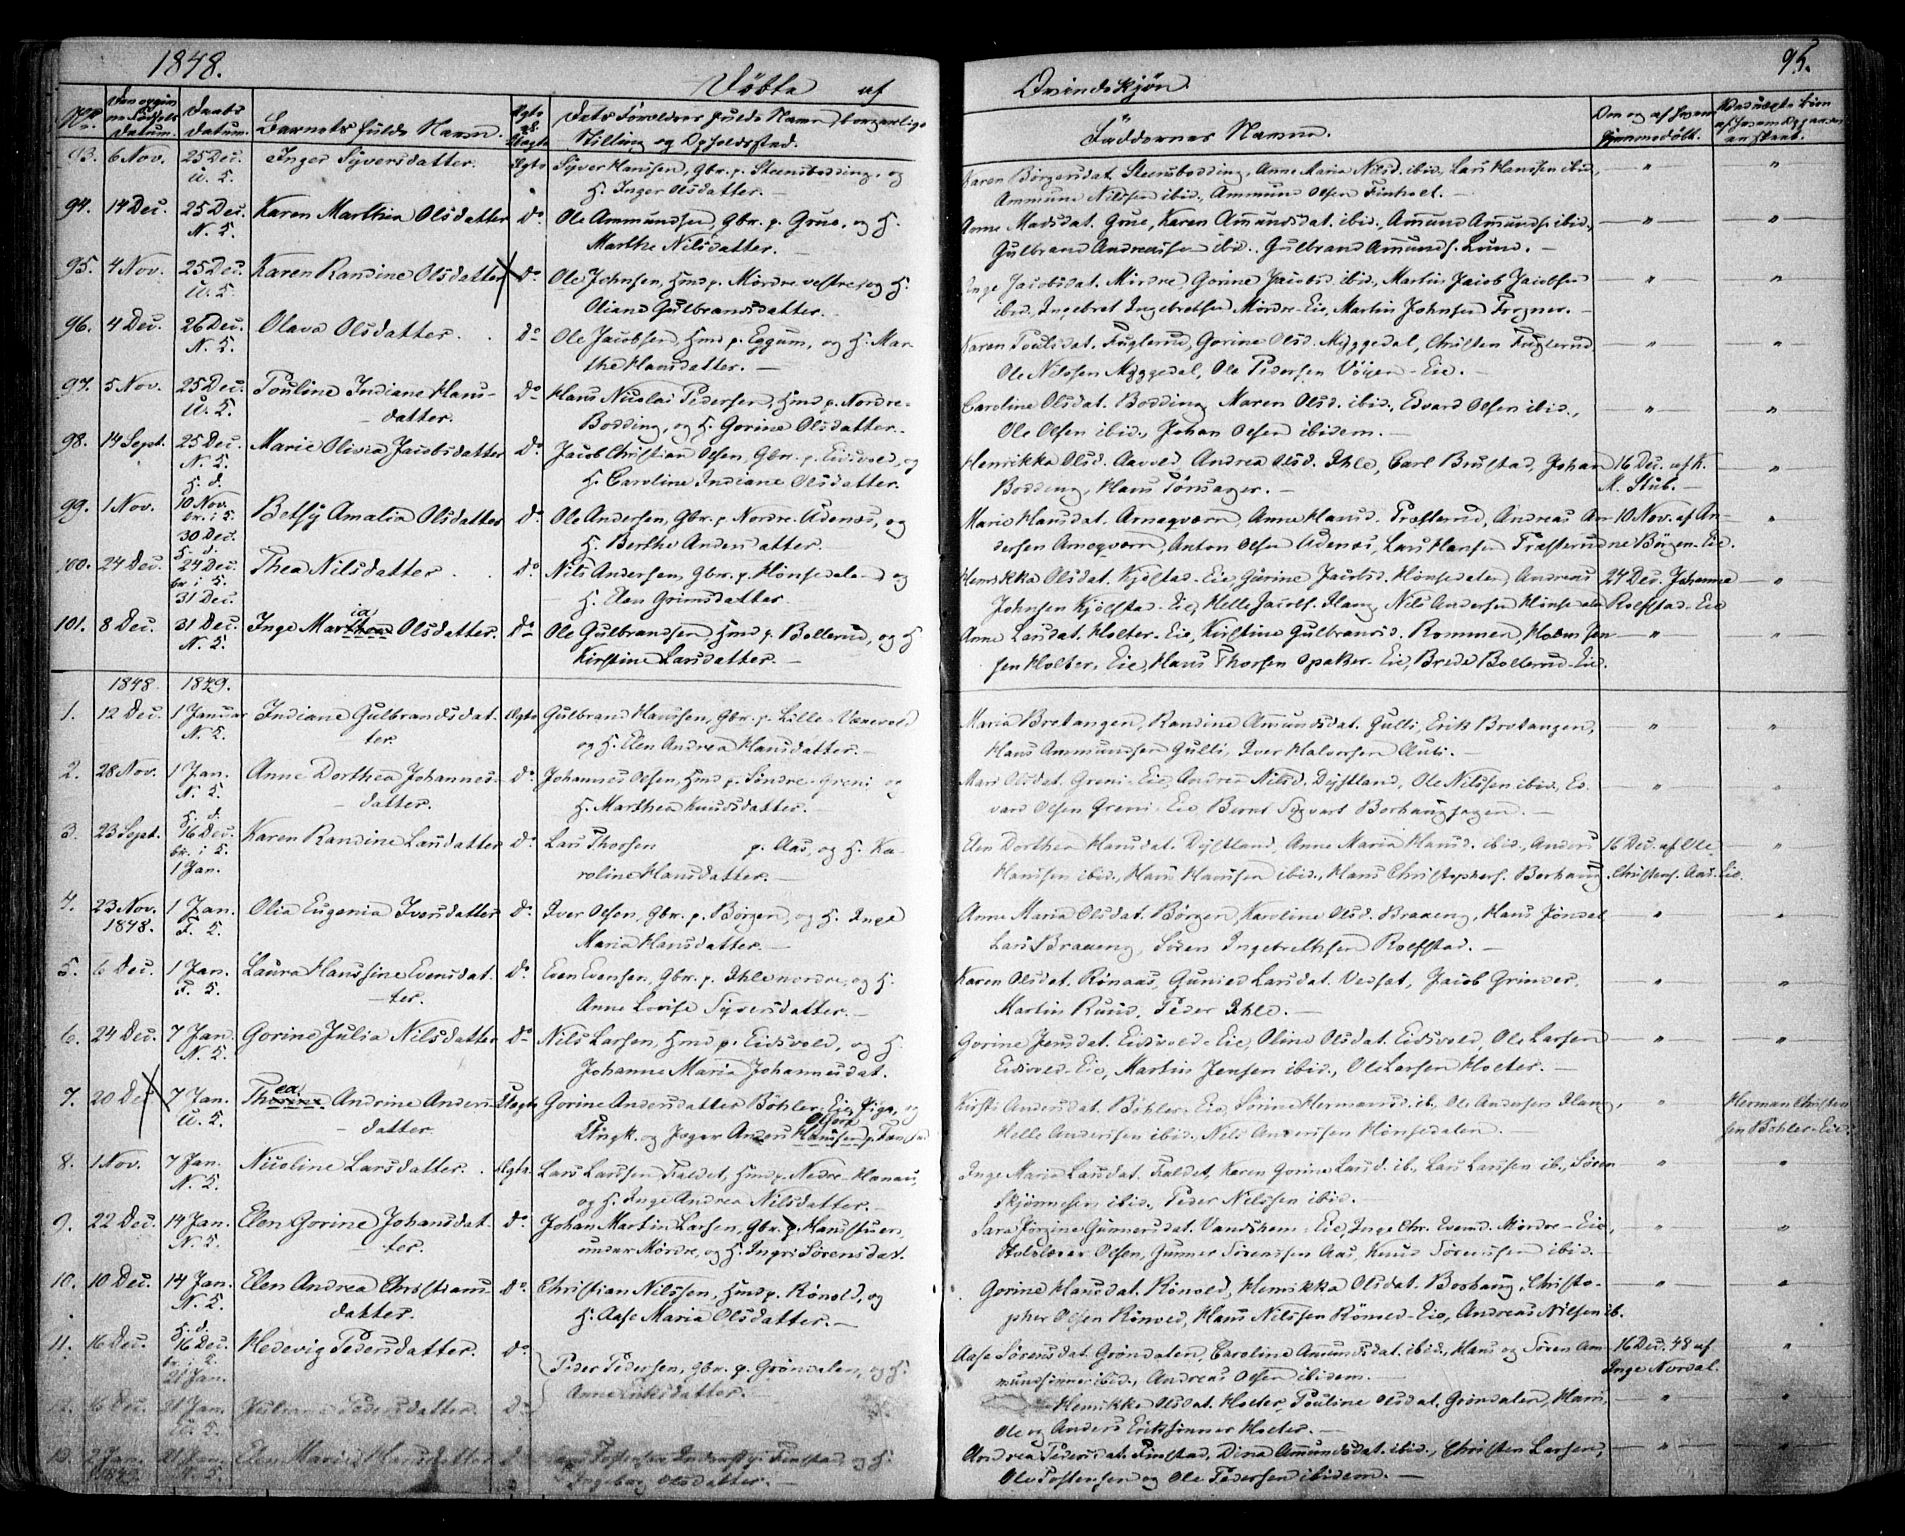 1848.
95.
Döbte af
Qvindekjön.
No.
Datum.
Daabs Datum.
Barnets fulde Navn.
Stilling og Opholdssted.
Faddernes Navne.
93. 6 Nov. 25 Dec. Inger Syversdatter. Ægte Syver Hanssen, Gbr. p. Steensbodding, og
H. Inger Olsdatter.
Karen Börgersdat. Steensbodding, Anne Maria Nilsd. ibid, Lars Hanssen ibid,
Nilssen ibid, Ammund Olsen
94. 14 Dec. 25 Dec. Karen Marthea Olsdatter Do. Ole Ammundsen, Gbr. p. Grue, og H.
N. K. Marthe Nilsdatter.
Anne Madsdat. Grue, Karen Amundsdat. ibid, Amund Amunds. ibid,
Gulbrand Andreassen ibid. Gulbrand Amunds. Lund.
95. 4 Nov. 25 Dec. Karen Randine Olsdatter Do. Ole Johnsen, Hmd p. Mördre vestre, og H.
Oliane Gulbrandsdatter.
Inge Jacobsdat. Mördre, Gorine Jacobsd. ibid, Martin Jacob Jacobsen
ibid, Ingebret Ingebretsen Mördre-Eie, Martin Johnsen Frogner.
96. 4 Dec. 26 Dec. Olava Olsdatter. Do. Ole Jacobsen, Hmd p. Eggum, og H. Mar-
N. K. the Hansdatter.
Karen Poulsdat. Fuglerud, Gorine Olsd. Myggedal, Christen Fuglerud
Ole Nilssen Myggedal, Ole Pedersen Vöien-Eie.
97. 5 Nov. 25 Dec. Pouline Indiane Hans- Do. Hans Nicolai Pedersen, Hmd p. Nordre-
datter. Bodding, og H. Gorine Olsdatter.
Caroline Olsdat. Bodding, Maren Olsd. ibid., Edvard Olsen ibid.,
Ole Olsen ibid, Johan Olsen ibidem.
98. 14 Sept. 25 Dec. Marie Olivia Jacobsdatter Do. Jacob Christian Olsen, Gbr. p. Eidsvold, og
N. K. H. Caroline Indiane Olsdatter.
Henrikka Olsd. Aavold, Andrea Olsd. Ihle, Carl Brustad, Johan 16 Dec. af K.
Bodding, Hans Tönsager. M. Stub.
99. 1 Nov. 10 Nov. Betsy Amalia Olsdatter Do. Ole Andersen, Gbr. p. Nordre-Udenes, og
30 Dec. H. Berthe Andersdatter.
Marie Hansdat. Arneqværn, Anne Hansd. Præsterud, Andreas An- 10 Nov. af An-
dersen Arneqværn, Anton Olsen Udenes, Lars Hansen Præsterud ne Börgen-Eie.
100. 24 Dec. 24 Dec. Thea Nilsdatter Do. Nils Andersen, Gbr. p. Hönsedalen og
31 Dec. H. Elen Grimsdatter
Henrikka Olsdat. Kjölstad-Eie, Gorine Jacobsd. Hönsedalen, Andreas 24 Dec. Johanne
Johnsen Kjölstad-Eie, Helle Jacobs. Ilang, Nils Andersen Hönsedalen Rolfstad-Eie
101. 8 Dec. 31 Dec. Inge Marthea ia Olsdatter. Do. Ole Gulbrandsen, Hmd p. Bollerud, og H.
N. K. Kirstine Larsdatter.
Anne Larsdat. Holter-Eie, Kirstine Gulbrandsd. Rommen,
sen Holter-Eie, Hans Thorsen Opaker-Eie, Brede Bollerud-Eie.
1848. 1849.
1. 12 Dec. 1 Januar Indiane Gulbrandsdat- Ægte Gulbrand Hanssen, Gbr. p. Lille-
N. K. ter. og H. Elen Andrea Hansdatter.
Maria Bretangen, Randine Amundsdat. Gulli, Erik Bretangen,
Hans Ammundsen Gulli, Iver Halvorsen Auli.
2. 28 Nov. 1 Jan. Anne Dorthea Johannes- Do. Johannes Olsen, Hmd p. Söndre-Greni og
N. K. datter. H. Marthea Knudsdatter.
Mari Olsdat. Greni-Eie, Andrea Nilsd. Dystland, Ole Nilssen ibid, Ed-
vard Olsen Greni-Eie, Bernt Syvert Borhaughagen.
3. 23 Sept. 16 Dec. Karen Randine Larsdatter Do. Lars Thorsen p. Aas, og H. Ka-
1 Jan. roline Hansdatter.
Elen Dorthea Hansdat. Dystland, Anne Maria Hansd. ibid., Anders 16 Dec. af Ole
Hanssen ibid., Hans Hanssen ibid, Hans Christophers. Borhaug Christens. Aas-Eie.
4. 23 Nov. 1 Jan. Olia Eugenia Iversdatter Do. Iver Olsen, Gbr. p. Börgen, og H. Inge
1848. F. K. Maria Hansdatter.
Anne Maria Olsdat. Börgen, Karoline Olsd. Braaeng, Hans
Lars Braaeng, Sören Ingebrethsen Rolfstad.
5. 6 Dec. 1 Jan. Laura Hanssine Evensdat- Do. Even Evensen, Gbr. p. Ihle nordre, og H.
F. K. ter. Anne Lovise Syversdatter.
Karen Olsdat. Rönaas, Gunild Larsdat. Jacob Grinder,
Martin Ruud, Peder Ihle.
6. 24 Dec. 7 Jan. Gorine Julia Nilsdatter Do. Nils Larsen, Hmd p. Eidsvold, og H.
N. K. Johanne Maria Johannesdat.
Gorine Jensdat. Eidsvold-Eie, Oline Olsdat. Eidsvold, Ole Larsen
Eidsvold-Eie, Martin Jensen ibid., Ole Larsen Holter.
7. 20 Dec. 7 Jan. ea Andrine Anders- Uægte Gorine Andersdatter Böhler-Eie, Pige, og
datter Ungk. og Jæger Anders Hanssen
Kirsti Andersdat. Böhler-Eie, Sörine Hermansd. ib., Ole Andersen Ilang, Herman Christen-
Helle Anderssen ibid., Nils Anderssen Hönsedalen. sen Böhler-Eie.
8. 1 Nov. 7 Jan. Nicoline Larsdatter. Ægte Lars Larssen Faldet, Hmd p. Nedre-Henaug,
N. K. og H. Inge Andrea Nilsdatter.
Inge Maria Larsdat. Faldet, Karen Gorine Larsd. ib., Lars Larssen ib., Sören
Skjönnesen ibid., Peder Nilssen ibid.
9. 22 Dec. 14 Jan. Elen Gorine Johansdat- Do. Johan Martin Larsen, Gbr. p.
N. K. ter. under Mördre, og H. Ingri Sörensdat.
Sara Jörgine Gunnersdat. Eie, Inge Chr. Evensd. Mördre-Eie,
Olsen, Gunner Sörenssen Aas, Knud Sörenssen ibid.
10. 10 Dec. 14 Jan. Elen Andrea Christians- Do. Christian Nilssen, Hmd p. Rönold, og
N. K. datter. H. Aase Maria Olsdatter.
Gorine Hansdat. Rönold, Henrikka Olsdat. Borhaug, Christo-
pher Olsen Rönold, Hans Nilssen Eie, Andreas Nilsen ib.
11. 16 Dec. 16 Dec. Hedevig Pedersdatter. Do. Peder Pedersen, Gbr. p. Gröndalen, og H.
21 Jan. Anne Eriksdatter.
Aase Sörensdat. Gröndalen, Caroline Amundsdat. ibid., Hans og Sören Am- 16 Dec. 48 af
mundsönner ibid., Andreas Olsen ibidem. Inge Nordal.
12. 16 Dec. 21 Jan. Pedersdatter. Do.
Henrikka Olsdat. Holter, Pouline Olsdat. Gröndalen, Hans,
Ole og Anders Erikssönner Holter.
13. 2 Jan. 21 Jan. Elen Maria Do. Postensen Finstad, og H.
1849. Ingeborg Olsdatter.
Andrea Pedersdat. Finstad, Dina Amundsdat. ibid., Christen Larsen,
Ole Postensen og Ole Pedersen ibidem.